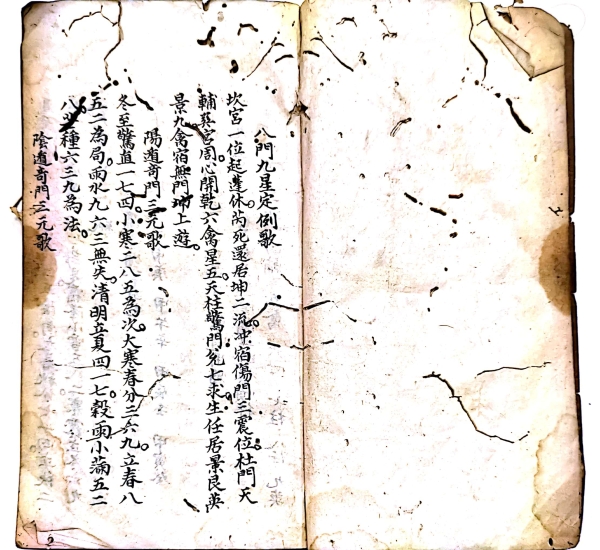 八門九星定例歌
坎宮一位起蓬休。芮死還居坤二流。沖宿傷門三震位。杜門天
輔巽宮周。心開乾六禽星五。天柱驚門兌七求。生任居景艮英
景九禽宿無門坤上遊。
陽遁奇門三元歌
冬至驚直一七四。小寒二八五為次。大寒春分三六九。立春八
五二為局。雨水九六三無失。清明立夏四一七。穀雨小滿五二
八。種六三九為法。
陰遁奇門三元歌